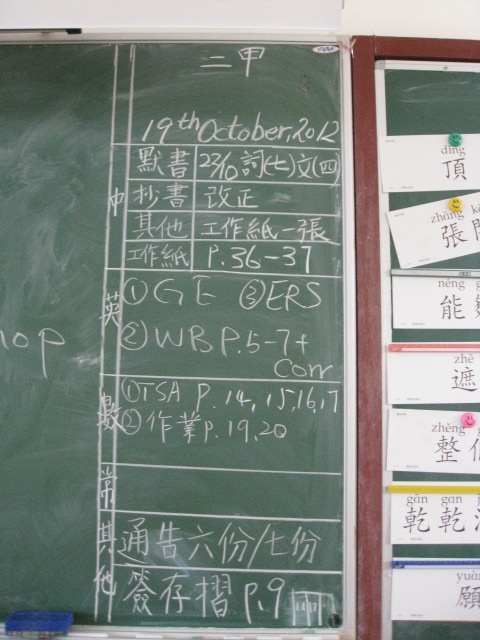 二甲
19th October, 2012
中
默書 22/10 詞(七)文(四)
抄書 改正
其他 工作紙一張
工作紙 P.36-37
英
①GE ③ERS
②WB P.5-7+
corr
數
①TSA P.14,15,16,17
②作業p.19,20
常
其他
通告六份/七份
簽存摺p.9
op
dǐng
頂
zhāng
張
néng
能
zhē
遮
zhěng
整
gān gān
乾乾
yuàn
願